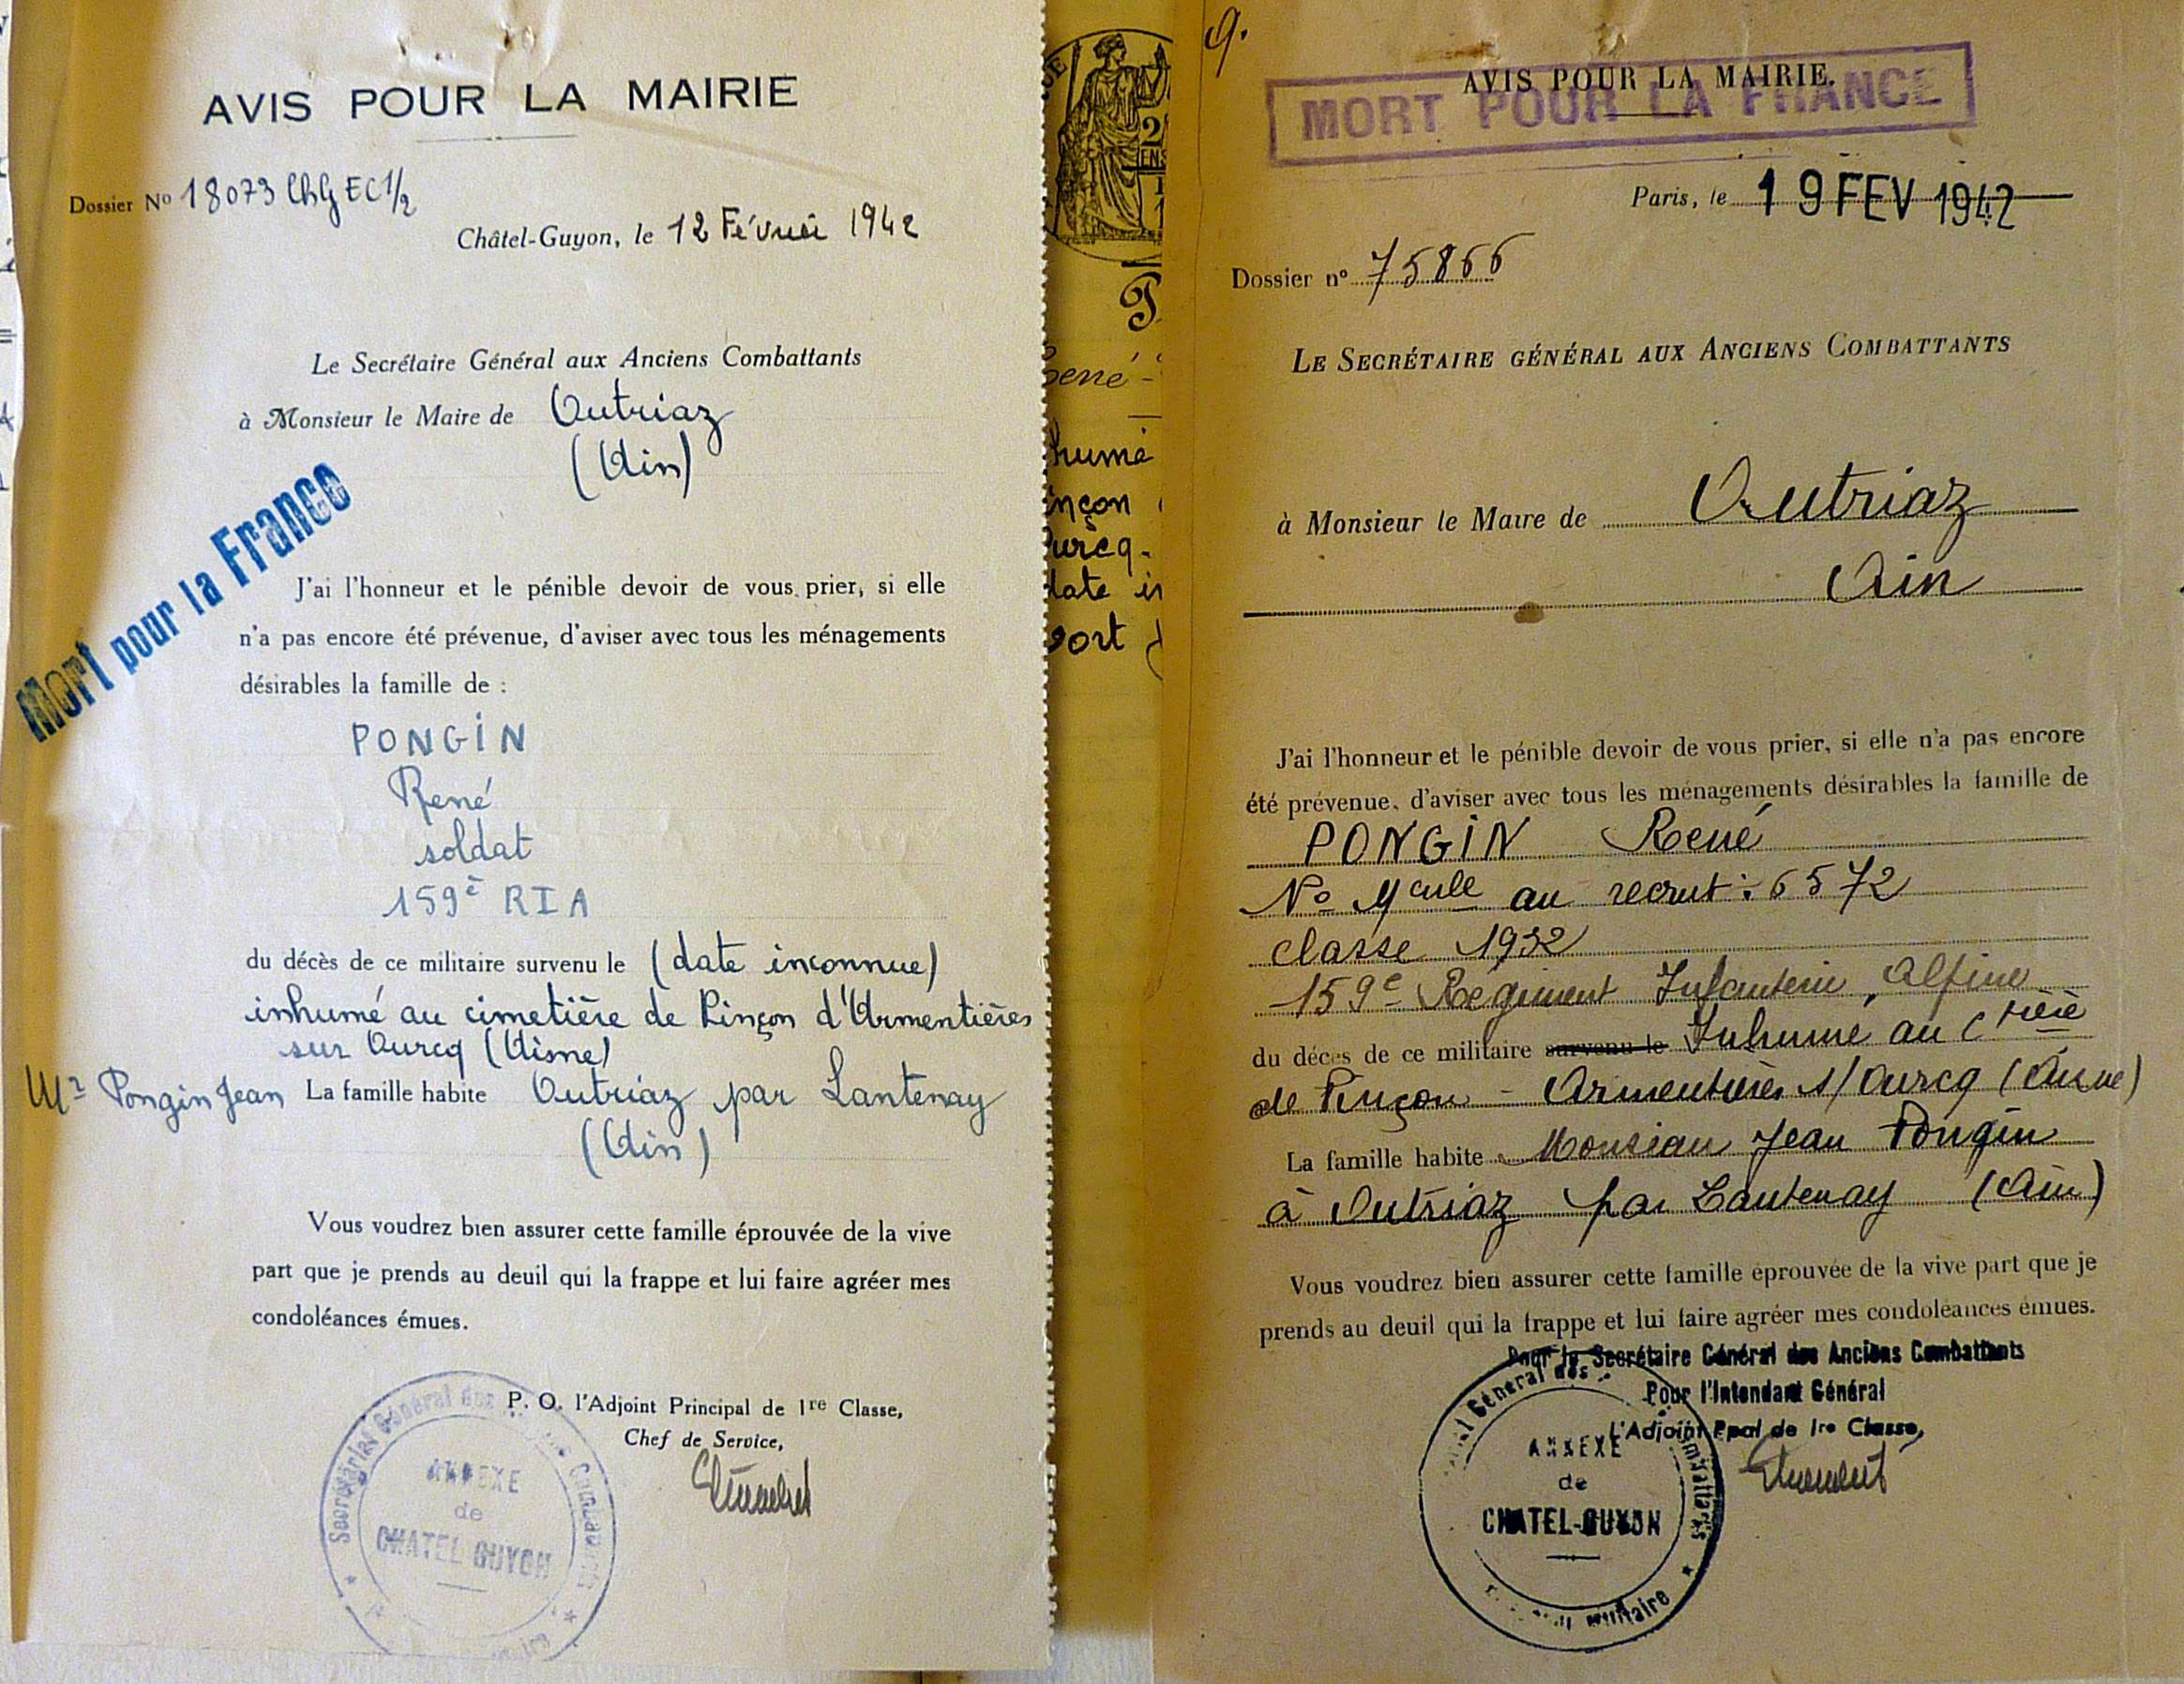 AVIS POUR LA MAIRIE
Dossier No 18073 ChG EC 1/2
Châtel-Guyon, le 12 Février 1942
Le Secrétaire Général aux Anciens Combattants
à Monsieur le Maire de Outriaz
(Ain)
Mort pour la France
J'ai l'honneur et le pénible devoir de vous prier, si elle
n'a pas encore été prévenue, d'aviser avec tous les ménagements
désirables la famille de :
PONGIN
René
soldat
159è RIA
du décès de ce militaire survenu le (date inconnue)
inhumé au cimetière de Rinçon d'Armentières
sur Ourcq (Aisne)
Mr Pongin Jean La famille habite Outriaz par Lantenay
(Ain)
Vous voudrez bien assurer cette famille éprouvée de la vive
part que je prends au deuil qui la frappe et lui faire agréer mes
condoléances émues.
P. O. l'Adjoint Principal de 1re Classe,
Chef de Service,
Secrétariat Général des Combattants
ANNEXE
de
CHATEL-GUYON
2
ENS
René-
humé
inçon
urcq.
date in
ort
9.
AVIS POUR LA MAIRIE.
MORT POUR LA FRANCE
Paris, le 19 FEV 1942
Dossier nº 75866
LE SECRÉTAIRE GÉNÉRAL AUX ANCIENS COMBATTANTS
à Monsieur le Maire de Outriaz
Ain
J'ai l'honneur et le pénible devoir de vous prier, si elle n'a pas encore
été prévenue, d'aviser avec tous les ménagements désirables la famille de
PONGIN René
No Mcule au recrut : 6572
classe 1932
159e Régiment Infanterie Alpine
du décès de ce militaire survenu le Inhumé au Ctière
de Rinçon - Armentières s/Ourcq (Aisne)
La famille habite Monsieur Jean Pongin
à Outriaz par Lantenay (Ain)
Vous voudrez bien assurer cette famille éprouvée de la vive part que je
prends au deuil qui la frappe et lui faire agréer mes condoléances émues.
Pour le Secrétaire Général des Anciens Combattants
Pour l'Intendant Général
L'Adjoint Ppal de 1re Classe,
Général des Combattants
ANNEXE
de
CHATEL-GUYON
militaire